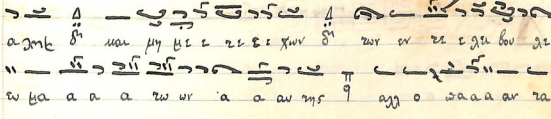 α λης δη και μη με ε τε ε ε χων δη των εν τε ε λει βου λε
ω μα α α α τω ων α α αυ της q αλλ ο πα α α αν τα